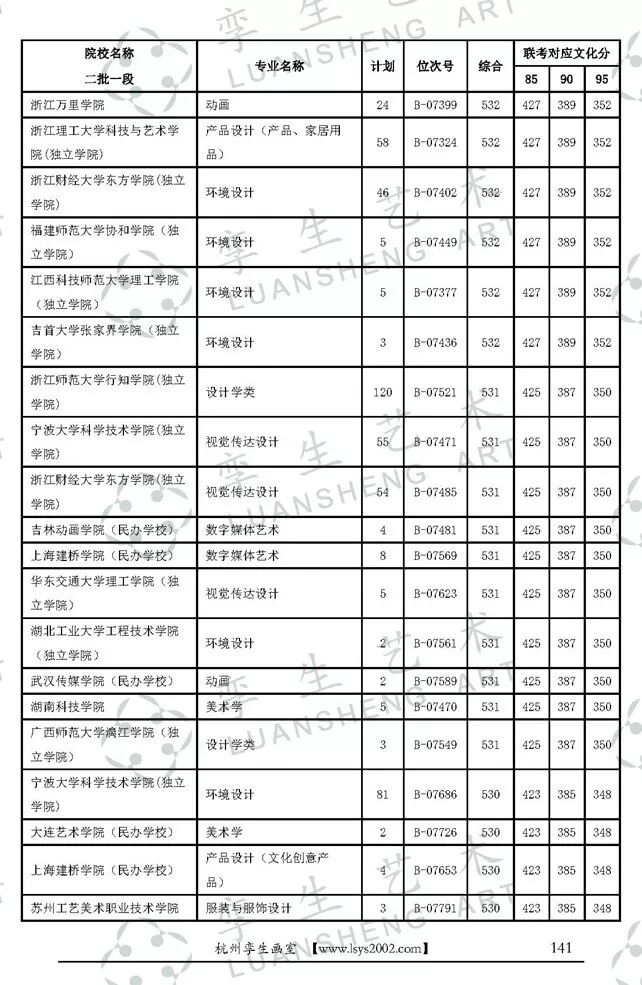 院校名称 二批一段 专业名称 计划 位次号 综合 联考对应文化分
85 90 95
浙江万里学院 动画 24 B-07399 532 427 389 352
浙江理工大学科技与艺术学院(独立学院) 产品设计（产品、家居用品） 58 B-07324 532 427 389 352
浙江财经大学东方学院(独立学院) 环境设计 46 B-07402 532 427 389 352
福建师范大学协和学院（独立学院） 环境设计 5 B-07449 532 427 389 352
江西科技师范大学理工学院（独立学院） 环境设计 5 B-07377 532 427 389 352
吉首大学张家界学院（独立学院） 环境设计 3 B-07436 532 427 389 352
浙江师范大学行知学院(独立学院) 设计学类 120 B-07521 531 425 387 350
宁波大学科学技术学院(独立学院) 视觉传达设计 55 B-07471 531 425 387 350
浙江财经大学东方学院(独立学院) 视觉传达设计 54 B-07485 531 425 387 350
吉林动画学院（民办学校） 数字媒体艺术 4 B-07481 531 425 387 350
上海建桥学院（民办学校） 数字媒体艺术 8 B-07569 531 425 387 350
华东交通大学理工学院（独立学院） 视觉传达设计 5 B-07623 531 425 387 350
湖北工业大学工程技术学院（独立学院） 环境设计 2 B-07561 531 425 387 350
武汉传媒学院（民办学校） 动画 2 B-07589 531 425 387 350
湖南科技学院 美术学 5 B-07470 531 425 387 350
广西师范大学漓江学院（独立学院） 设计学类 3 B-07549 531 425 387 350
宁波大学科学技术学院(独立学院) 环境设计 81 B-07686 530 423 385 348
大连艺术学院（民办学校） 美术学 2 B-07726 530 423 385 348
上海建桥学院（民办学校） 产品设计（文化创意产品） 4 B-07653 530 423 385 348
苏州工艺美术职业技术学院 服装与服饰设计 3 B-07791 530 423 385 348
杭州孪生画室 【www.lsys2002.com】 141
孪生艺术
LUANSHENG ART